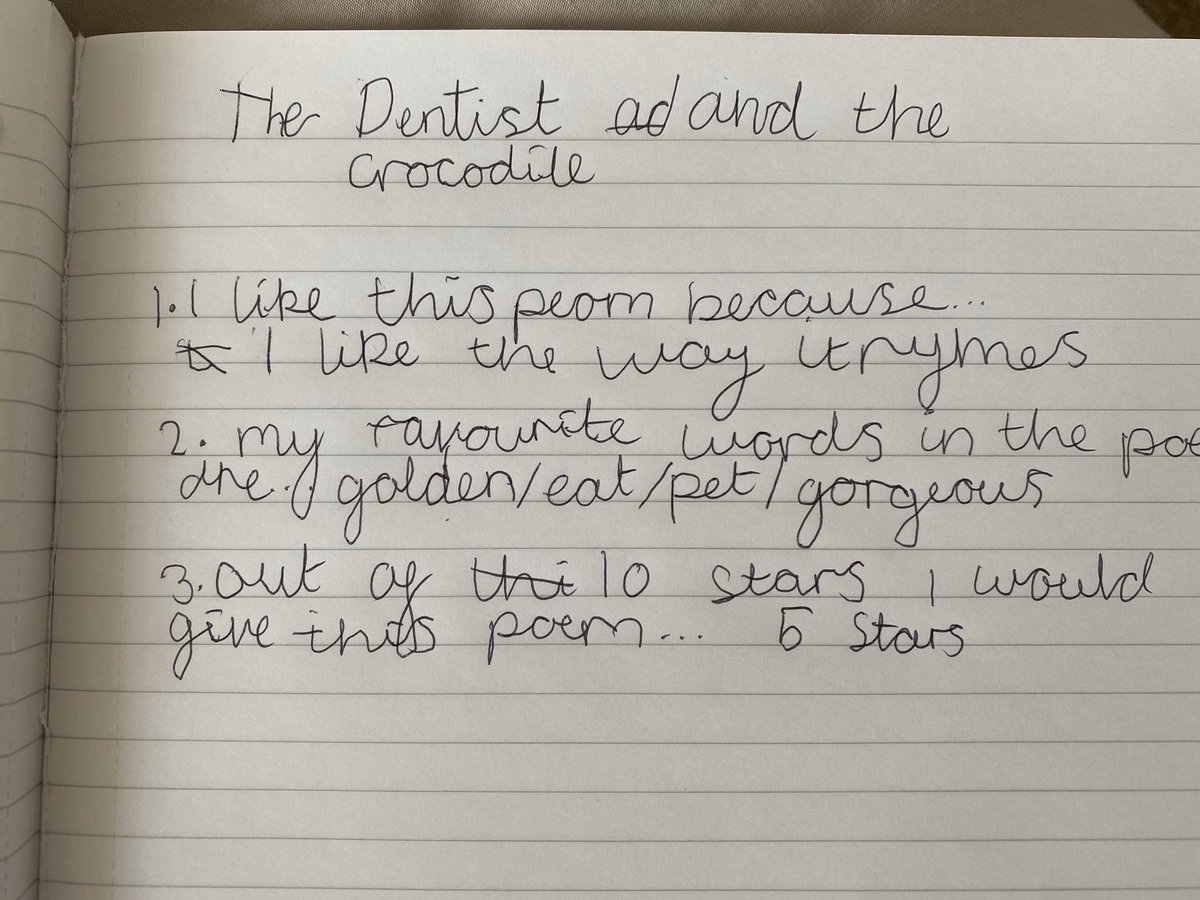 The Dentist ad and the
crocodile
1. I like this peom because...
I like the way it rymes
2. my favourite words in the poe
are./ golden/eat/pet/gorgeous
3. out of thi 10 stars I would
give this poem... 5 stars